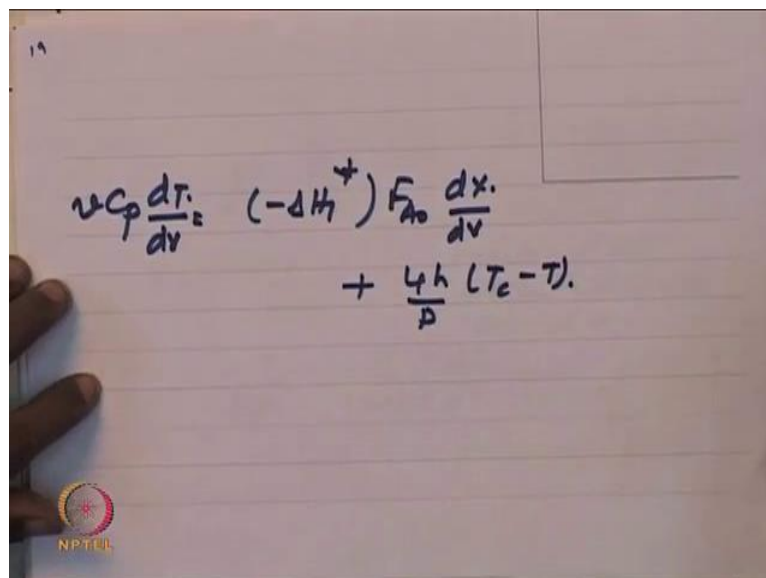 19
v Cp dT/dV = (-ΔH₁*) F_A0 dX/dV
+ 4h/D (Tc - T).
NPTEL